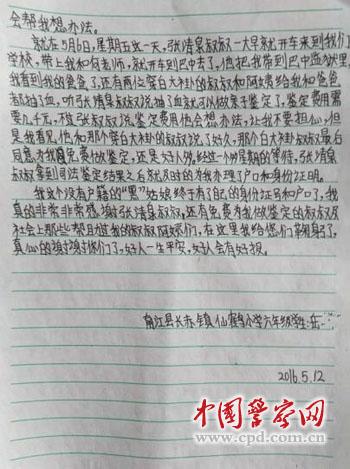 会帮我想办法。
就在5月6日,星期五这一天,张清泉叔叔一大早就开车来到我们
学校,带上我和何老师,就开车到巴中去了,他把我带到巴中监狱里,
我看到我的爸爸了,还有两位穿白大褂的叔叔和阿姨给我和爸爸
都抽了血,听张清泉叔叔说抽了血就可以做亲子鉴定了,鉴定费用需
要几千元,不过张叔叔说鉴定费用他会想办法,让我不要担心。但
是,我看见他和那个穿白大褂的叔叔说了好久,那个白大褂叔叔最后
同意为我免费做鉴定,还是好人多。经过一个星期的等待,张清泉
叔叔拿到司法鉴定结果之后就及时的为我办理了户口和身份证明。
我这个没有户籍的“黑”姑娘终于有了自己的身份证号和户口了,我
真的非常非常感谢张清泉叔叔,还有免费为我做鉴定的叔叔及
社会上那些帮且过我的叔叔阿姨们,在这里我给您们鞠躬了,
真心的谢谢你们了,好人一生平安,好人会有好报。
南江县长赤镇仙鹤小学六年级学生:岳
2016.5.12
中国警察网
www.cpd.com.cn